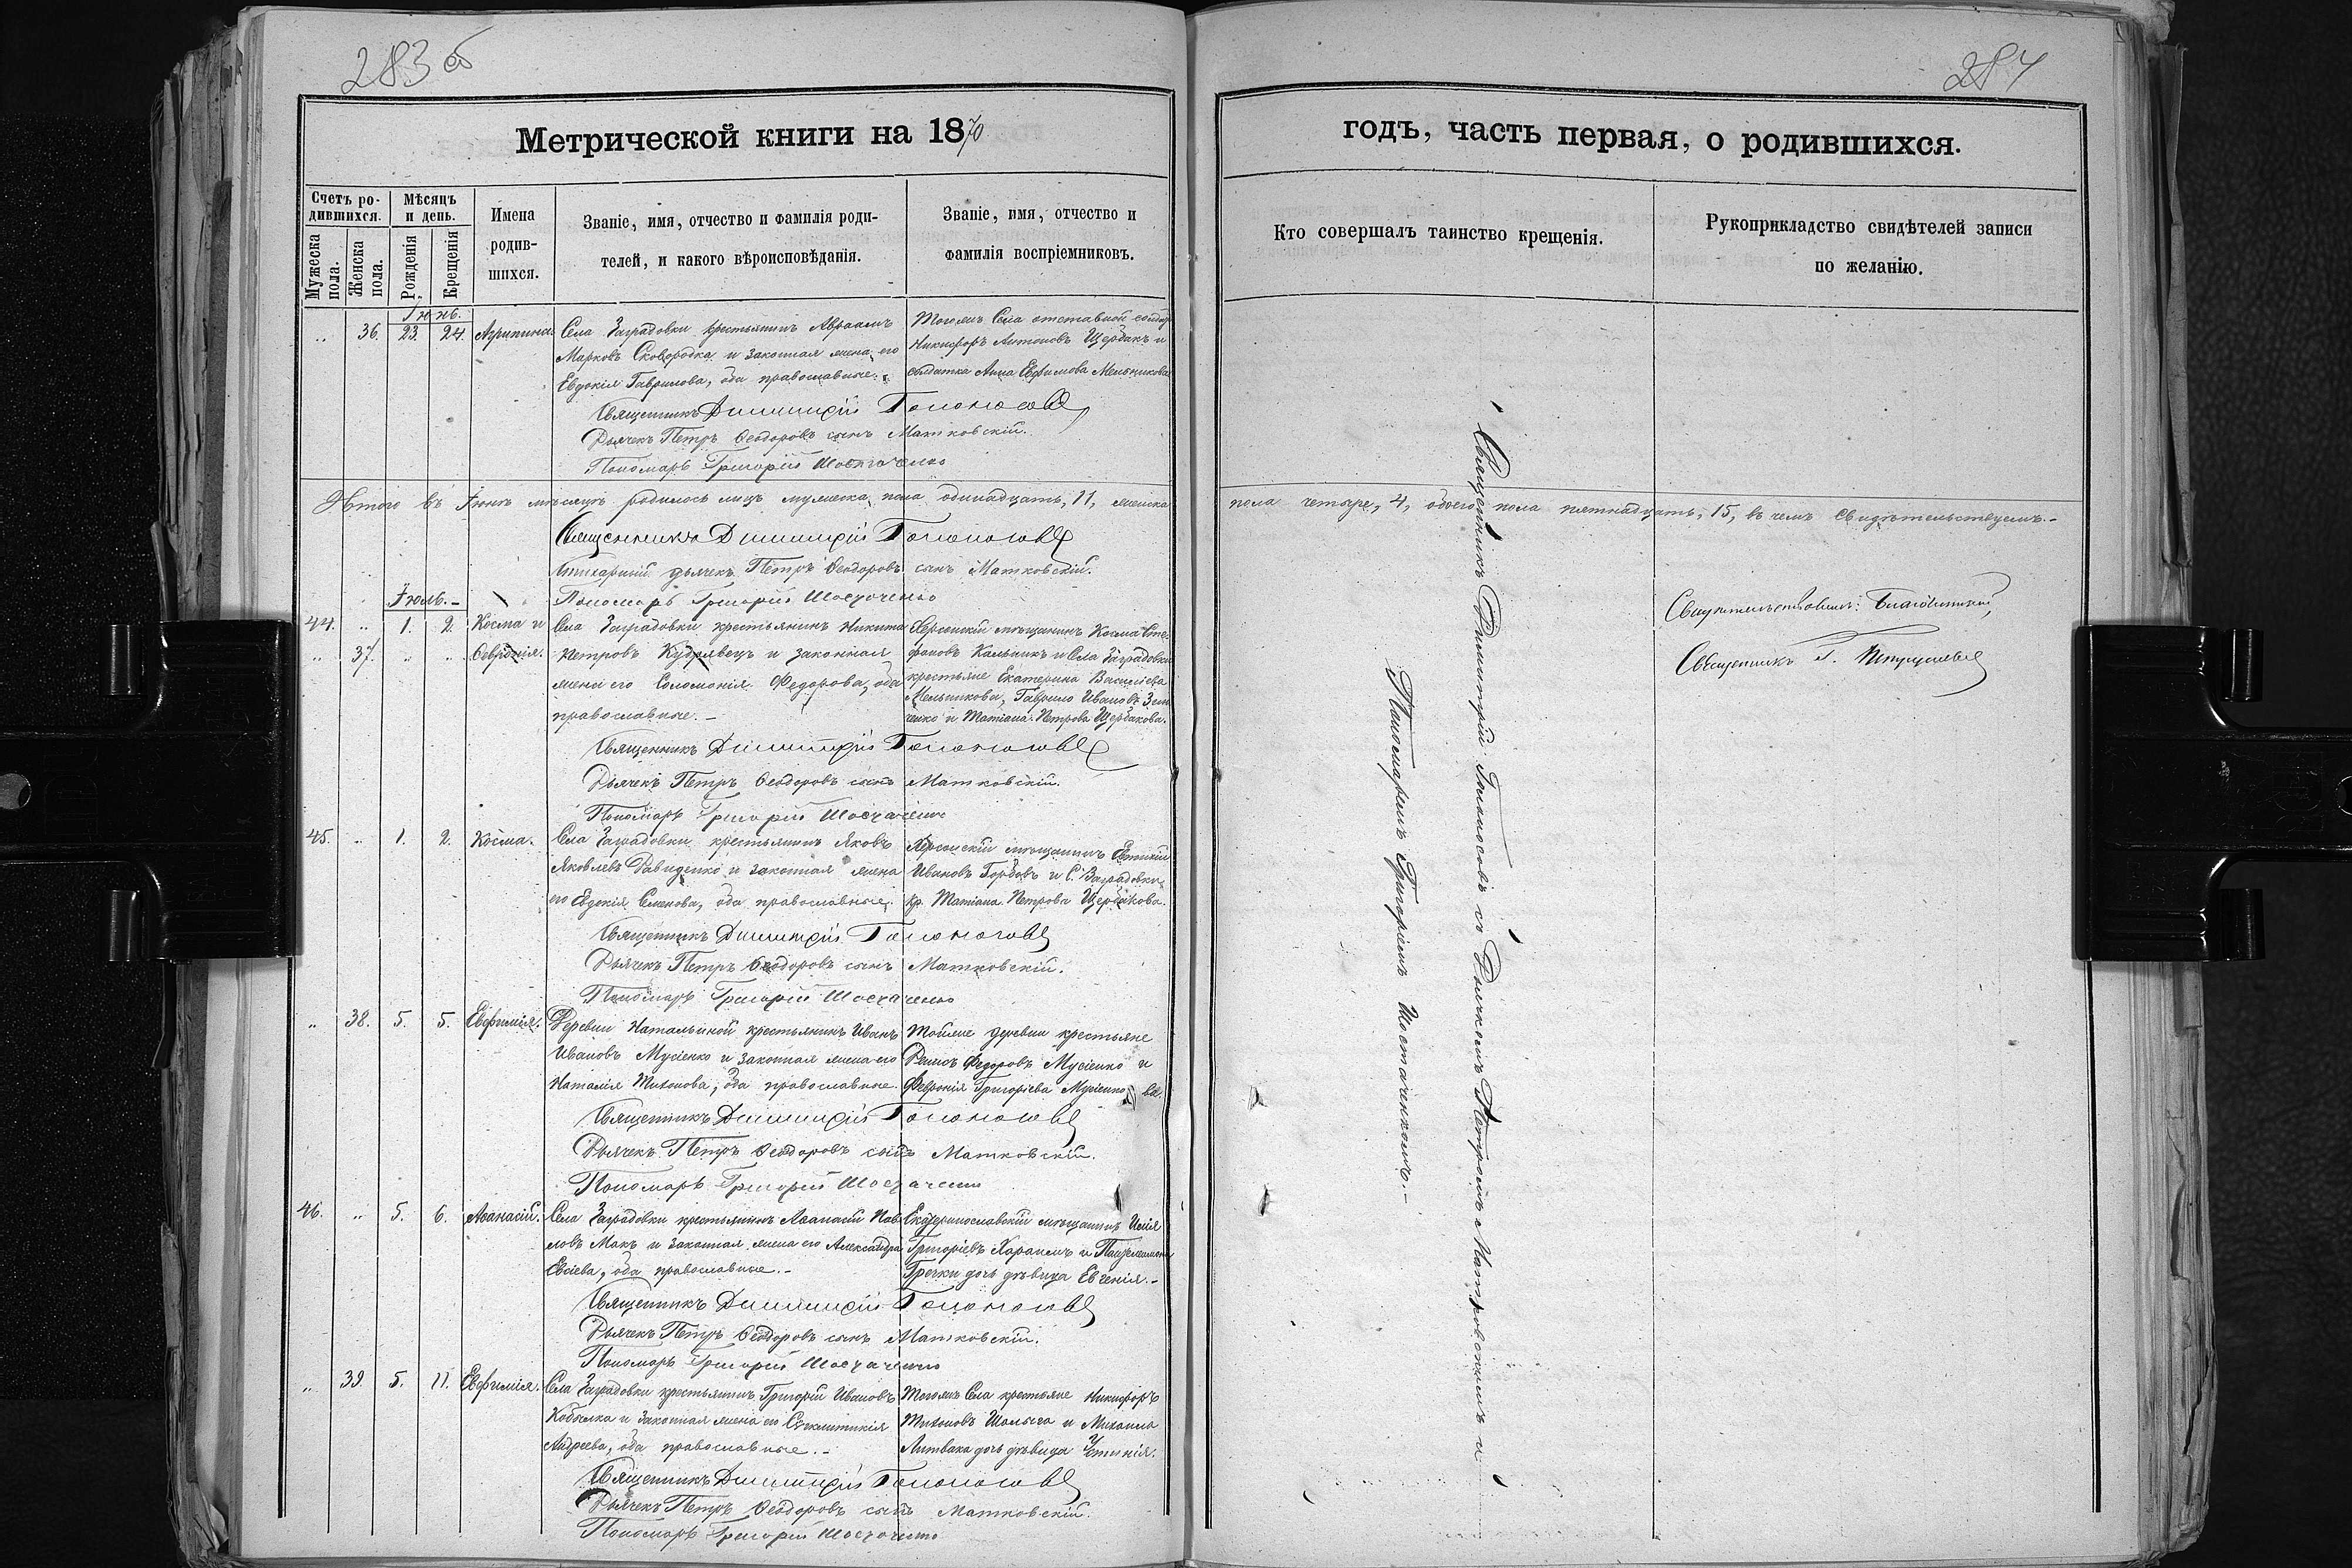 283 об
Метрической книги на 1870
Счетъ родившихся.
Мужеска пола.
Женска пола.
Мѣсяцъ и день.
Рожденія
Крещенія
Имена родившихся.
Званіе, имя, отчество и фамилія родителей, и какого вѣроисповѣданія.
Званіе, имя, отчество и фамилія воспріемниковъ.
Іюнь.
„ 36. 23. 24. Агрипина.
Села Заградовки крестьянинъ Авраамъ
Марковъ Сковородка и законная жена его
Евдокія Гаврилова, оба православные.
Тогожъ Села отставной солдатъ
Никифоръ Антоновъ Щербакъ и
солдатка Анна Евфимова Мельникова
Священникъ Димитрій Голоносовъ
Дьячекъ Петръ Ѳеодоровъ сынъ Матковскій.
Пономарь Григорій Шостаченко
Итого въ Іюнѣ мѣсяцѣ родилось лицъ мужеска пола одинадцать, 11, женска
Священникъ Димитрій Голоносовъ
Стихарный дьячекъ Петръ Ѳеодоровъ сынъ Матковскій.
Пономарь Григорій Шостаченко
Іюль.-
44. „ 1. 2. Косма и
„ 37. „ „ Ѳевронія.
Села Заградовки крестьянинъ Никита
Петровъ Кудрявецъ и законная
жена его Соломонія Федорова, оба
православные.-
Херсонскій мѣщанинъ Косма Сте-
фановъ Калыникъ и Села Заградовки
крестьяне Екатерина Василіева
Мельникова, Гаврило Ивановъ Зин
ченко и Татіана Петрова Щербакова.
Священникъ Димитрій Голоносовъ
Дьячекъ Петръ Ѳеодоровъ сынъ Матковскій.
Пономарь Григорій Шостаченко
45. „ 1. 2. Косма.
Села Заградовки крестьянинъ Яковъ
Яковлевъ Давиденко и законная жена
его Евдокія Семенова, оба православные.
Херсонскій мѣщанинъ Евтихій
Ивановъ Горбовъ и С. Заградовки
кр. Татіана Петрова Щербакова.
Священникъ Димитрій Голоносовъ
Дьячекъ Петръ Ѳеодоровъ сынъ Матковскій.
Пономарь Григорій Шостаченко
„ 38. 5. 5. Евфимія.
Деревни Натальиной крестьянинъ Иванъ
Ивановъ Мусіенко и законная жена его
Наталія Тихонова, оба православные.
Тойже деревни крестьяне
Денисъ Федоровъ Мусіенко и
Февронія Григоріева Мусіенко ва.
Священникъ Димитрій Голоносовъ
Дьячекъ Петръ Ѳеодоровъ сынъ Матковскій.
Пономарь Григорій Шостаченко
46. „ 5. 6. Аѳанасій.
Села Заградовки крестьянинъ Аѳанасій Пав-
ловъ Макъ и законная жена его Александра
Евсіева, оба православные.-
Екатеринославскій мѣщанинъ Илія
Григоріевъ Харапъ и Пантелеимона
Гречки дочь дѣвица Евгенія.-
Священникъ Димитрій Голоносовъ
Дьячекъ Петръ Ѳеодоровъ сынъ Матковскій.
Пономарь Григорій Шостаченко
„ 39. 5. 11. Евфимія.
Села Заградовки крестьянинъ Григорій Ивановъ
Кобылка и законная жена его
Андреева, оба православные.-
Тогожъ Села крестьяне Никифоръ
Тихоновъ и Михаила
Литвака дочь дѣвица Устинія.
Священникъ Димитрій Голоносовъ
Дьячекъ Петръ Ѳеодоровъ сынъ Матковскій.
Пономарь Григорій Шостаченко
284
годъ, часть первая, о родившихся.
Кто совершалъ таинство крещенія.
Рукоприкладство свидѣтелей записи по желанію.
пола четыре, 4, обоего пола пятнадцать, 15, въ чемъ свидѣтельствуемъ.-
Священникъ Димитрій Голоносовъ съ Дьячкомъ Петромъ Матковскимъ и
Пономаремъ Григоріемъ Шостаченкомъ.-
Свидѣтельствовалъ: Благочинный,
Священникъ